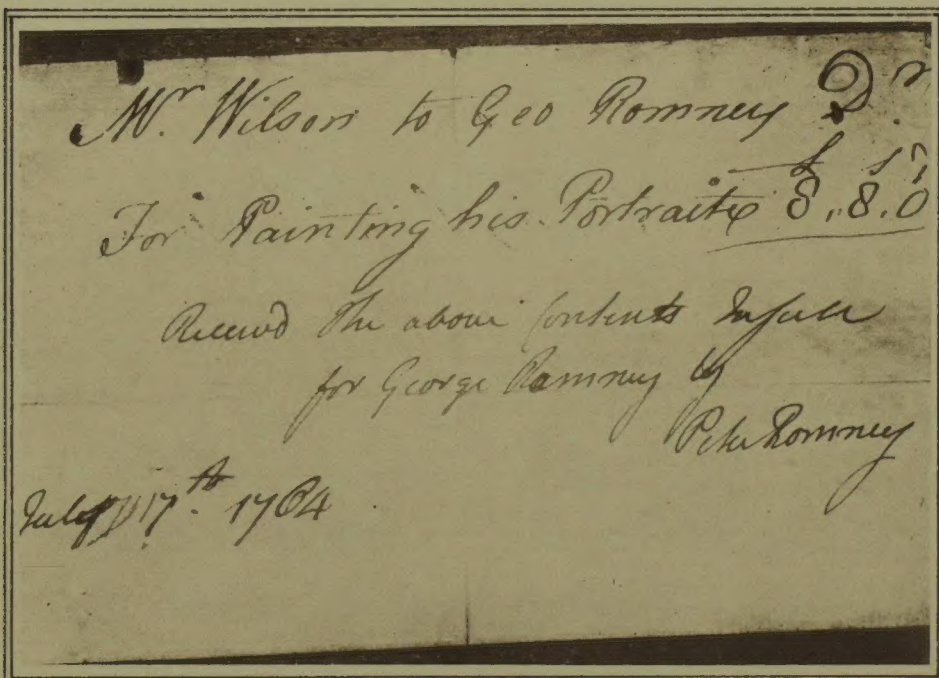 Mr Wilson to Geo Romney Dr
£ s d
For Painting his Portrait 8.8.0
Receivd the above Contents In full
for George Romney by
Peter Romney
July 17th. 1764